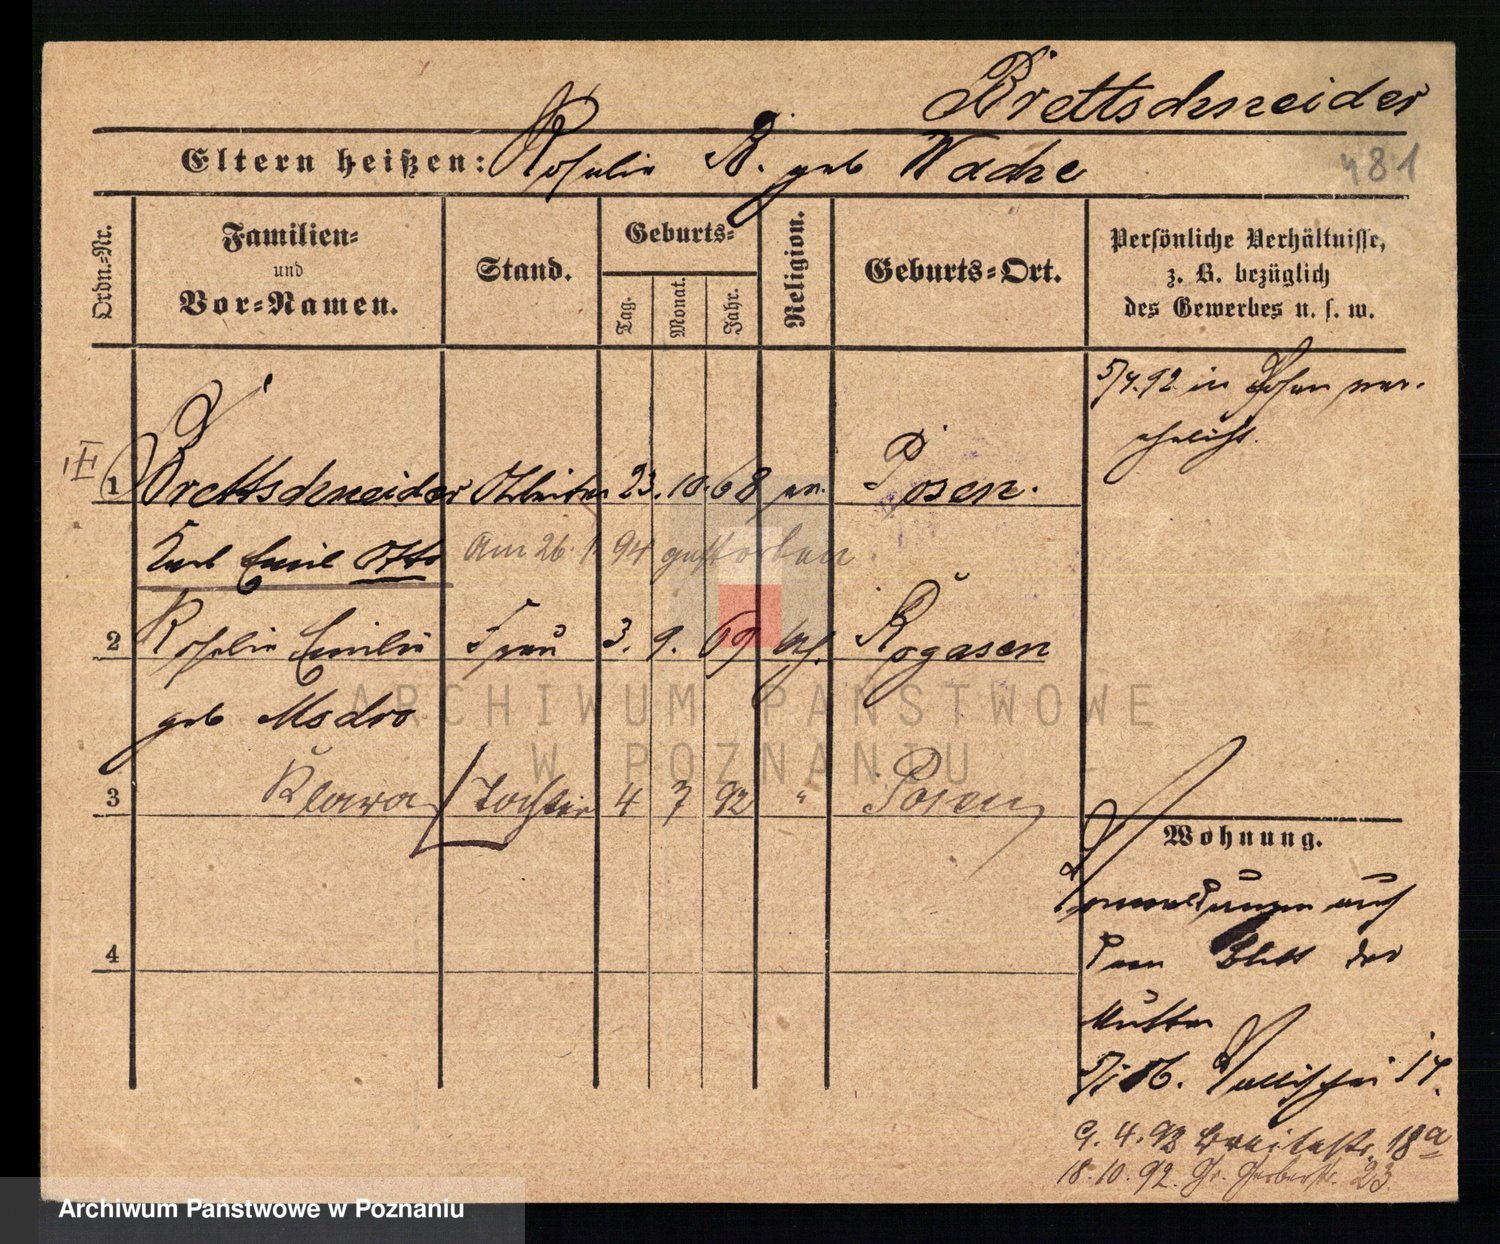 Brettschneider
Eltern heißen: Rosalie B. geb Wache
481
Ordn.-Nr.
Familien-
und
Vor-Namen.
Stand.
Geburts-
Tag.
Monat.
Jahr.
Religion.
Geburts-Ort.
Persönliche Verhältnisse,
z. B. bezüglich
des Gewerbes u. s. w.
5/4.92 in Posen ver-
ehelicht.
1 Brettschneider Arbeiter 23. 10. 68 ev. Posen.
Karl Emil Otto Am 26. 94 gestorben
2 Rosalie Emilie Frau 3. 9. 69 kh. Rogasen
geb
3 Klara Tochter 4 7 92 " Posen
Wohnung.
auf
dem Blatt der
Mutter
4
Wallischei 17.
9. 4. 92 Breitestr. 18a
18. 10. 92. Gr. Gerberstr. 23
ARCHIWUM PAŃSTWOWE
W POZNANIU
Archiwum Państwowe w Poznaniu